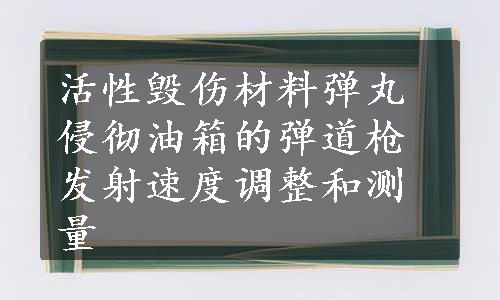 活性毁伤材料弹丸
侵彻油箱的弹道枪
发射速度调整和测
量